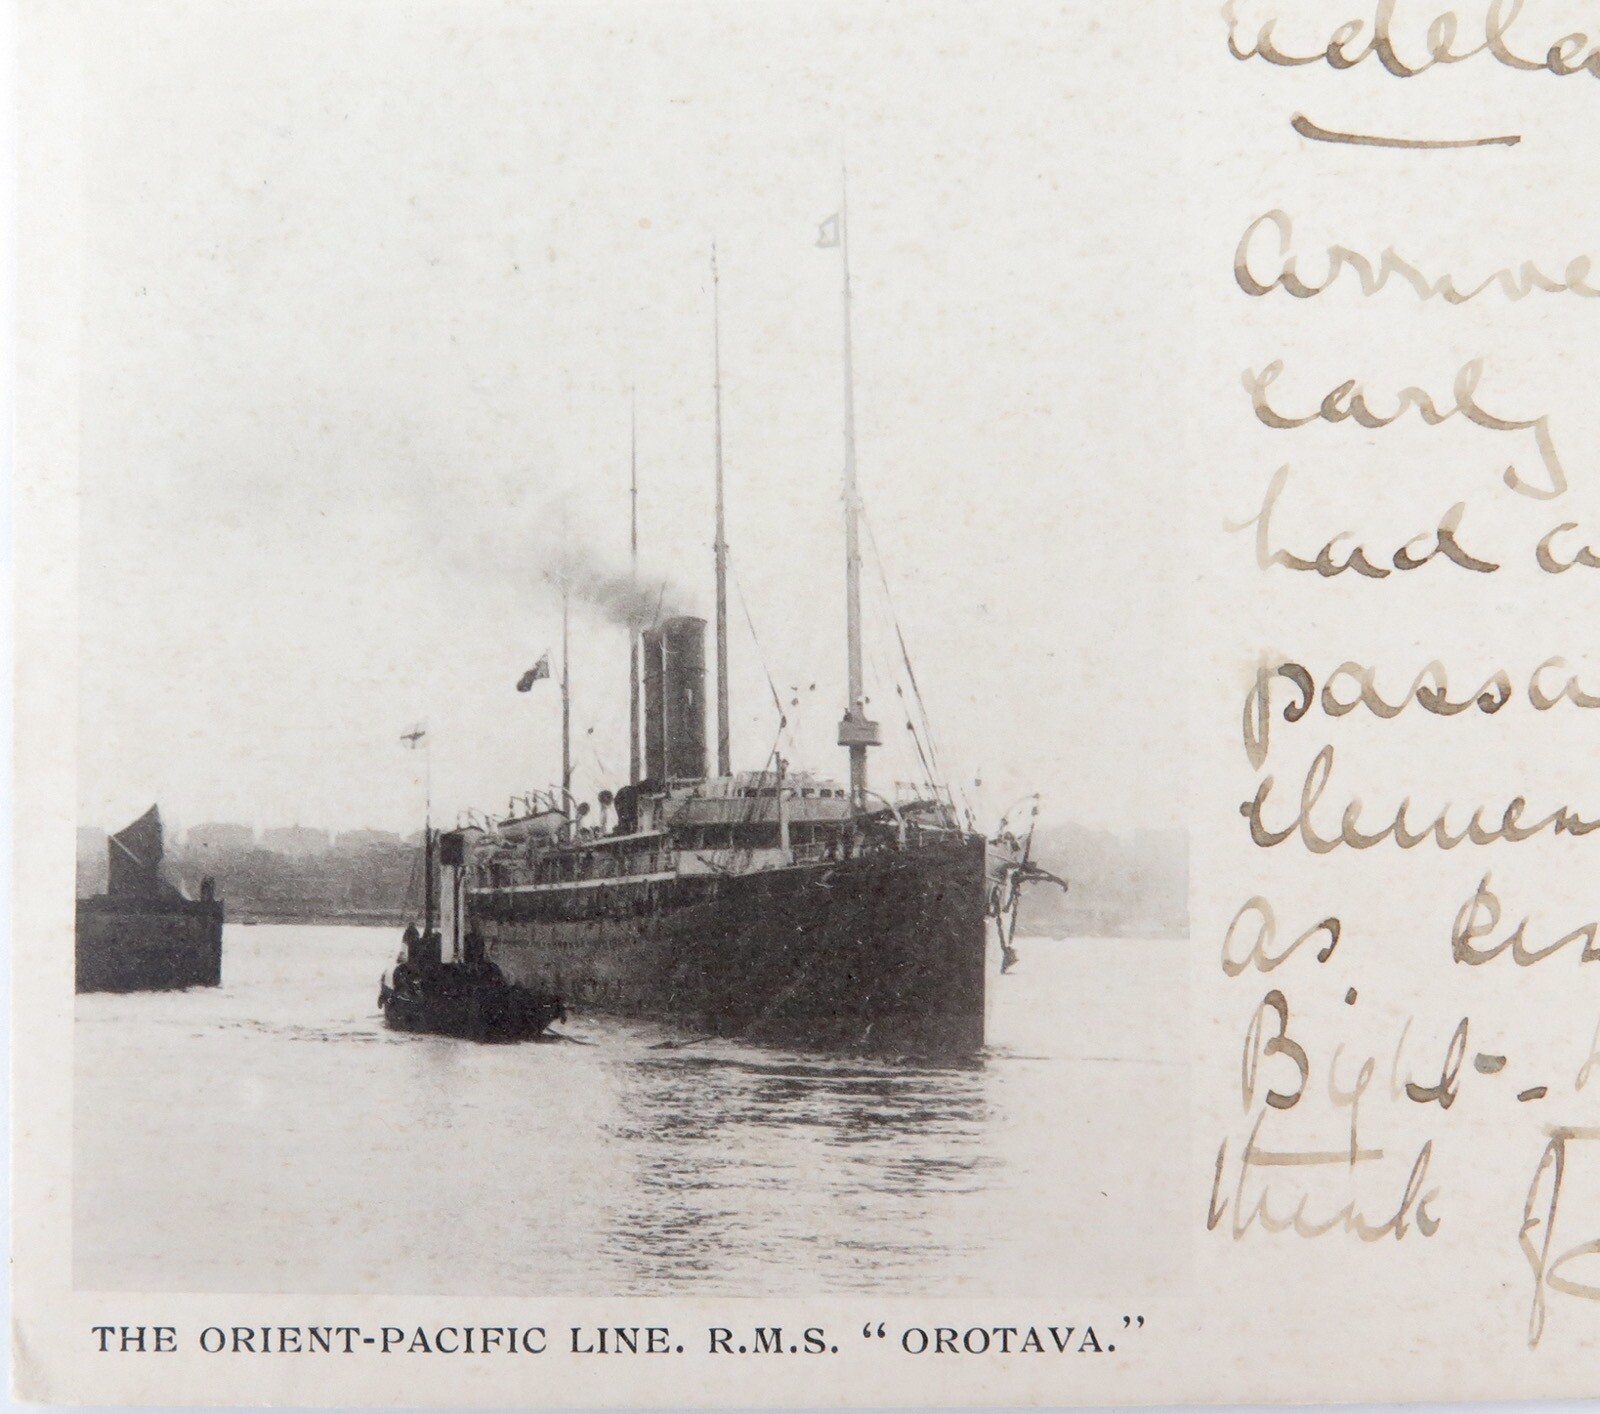 adela
Arrive
early
had a
passa
elemen
as
Bight -
think of
THE ORIENT-PACIFIC LINE. R.M.S. “OROTAVA.”